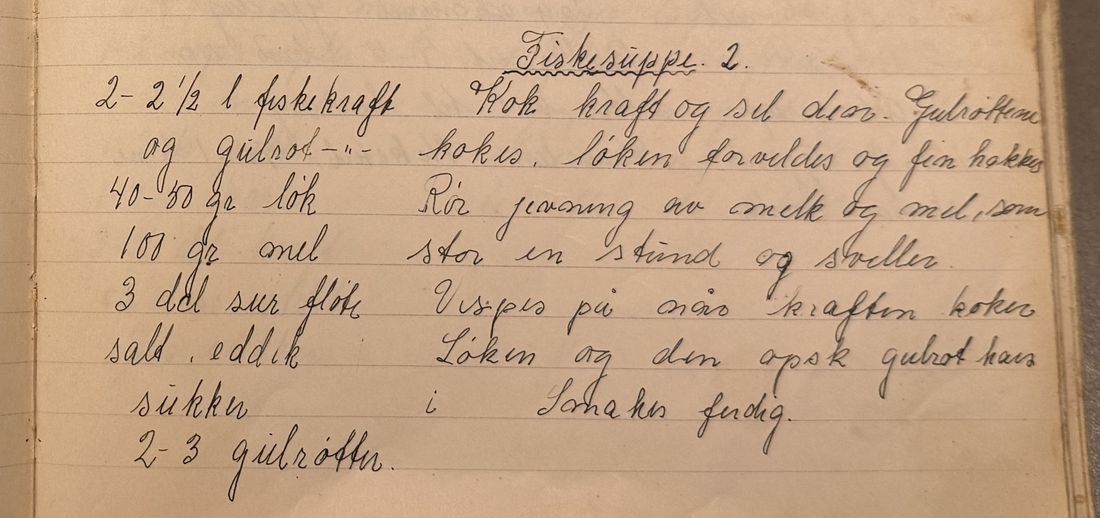 Fiskesuppe. 2.
2- 2 1/2 l fiskekraft Kok kraft og sil den. Gulrøttene
og gulrot -"- kokes. løken forvelles og fin hakkes
40-50 gr løk Rør jevning av melk og mel, som
100 gr mel står en stund og sveller.
3 dcl sur fløte Vispes på når kraften koker
salt, eddik Løken og den opsk gulrot haes
sukker i Smakes ferdig.
2-3 gulrøtter.